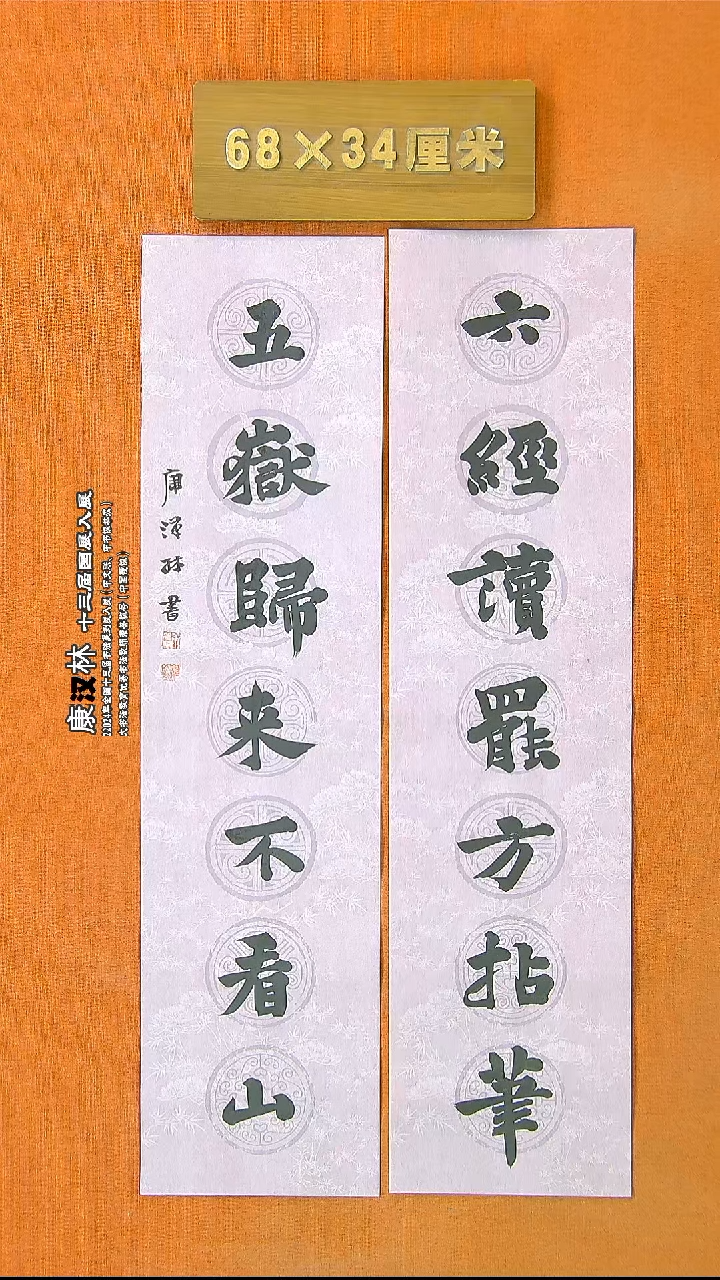 68×34厘米
六經讀罷方拈筆
五嶽歸来不看山
康漢林書
康汉林 十三届国展入展